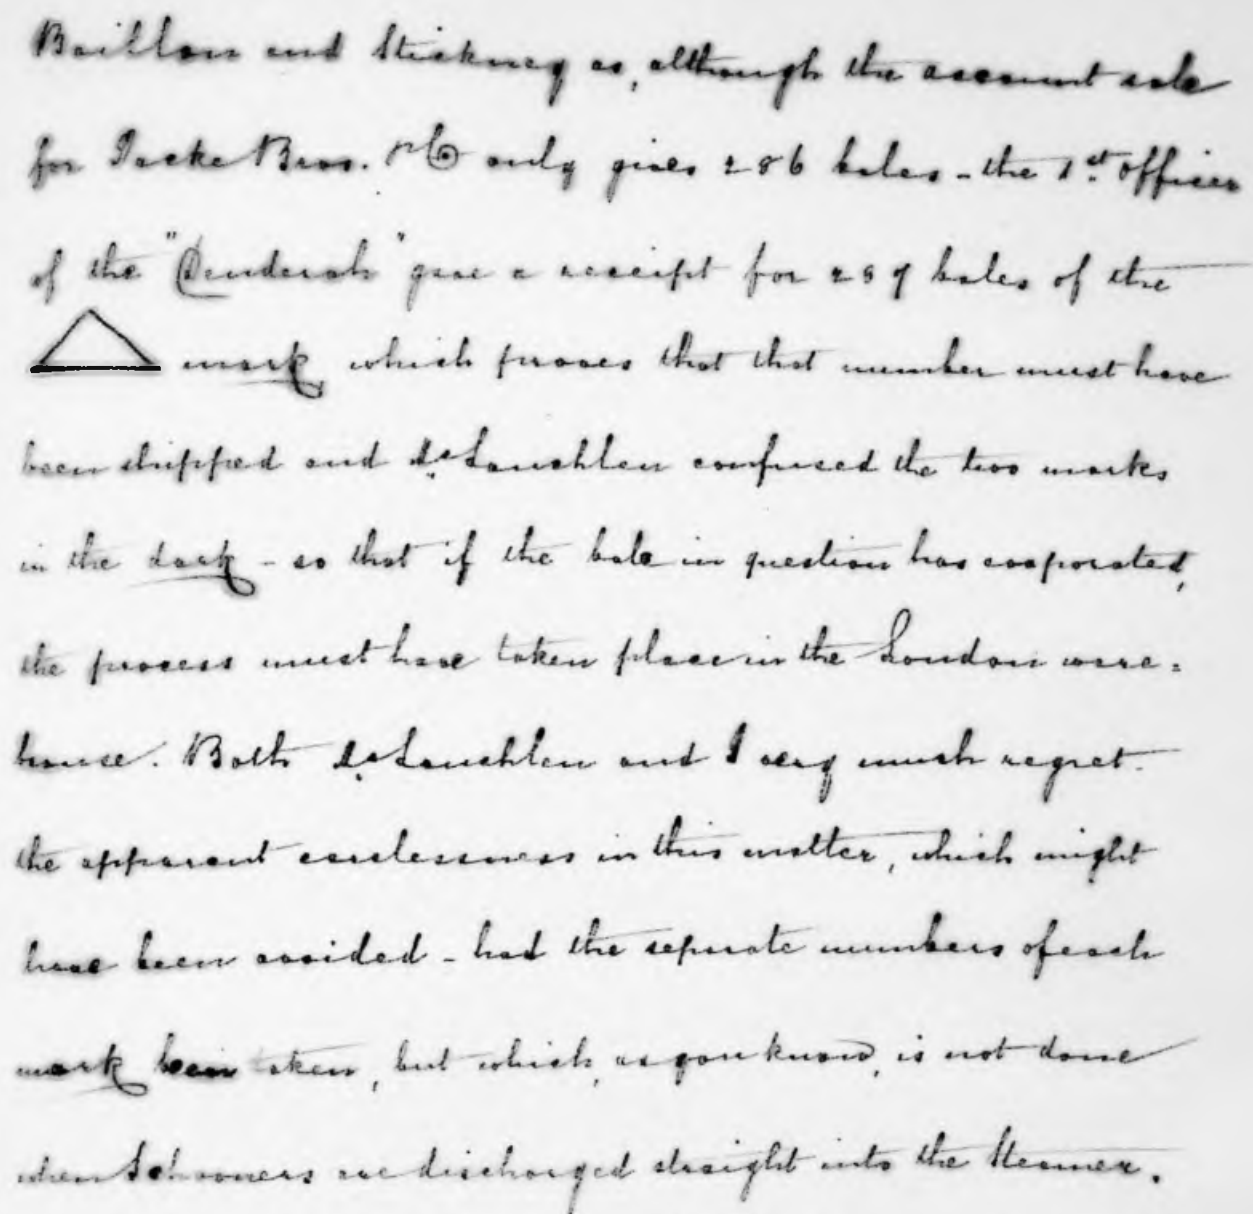 Baillon and Stickney as, although the account sale
for Packe Bros. & Co only gives 286 bales - the 1st Officer
of the "Denderah" gave a receipt for 289 bales of the
mark which proves that that number must have
been shipped and McLauchlen confused the two marks
in the dark - so that if the bale in question has evaporated,
the process must have taken place in the London ware=
house. Both McLauchlen and I very much regret
the apparent carelessness in this matter, which might
have been avoided - had the separate numbers of each
mark been taken, but which, as you know, is not done
when Schooners are discharged straight into the Steamer.